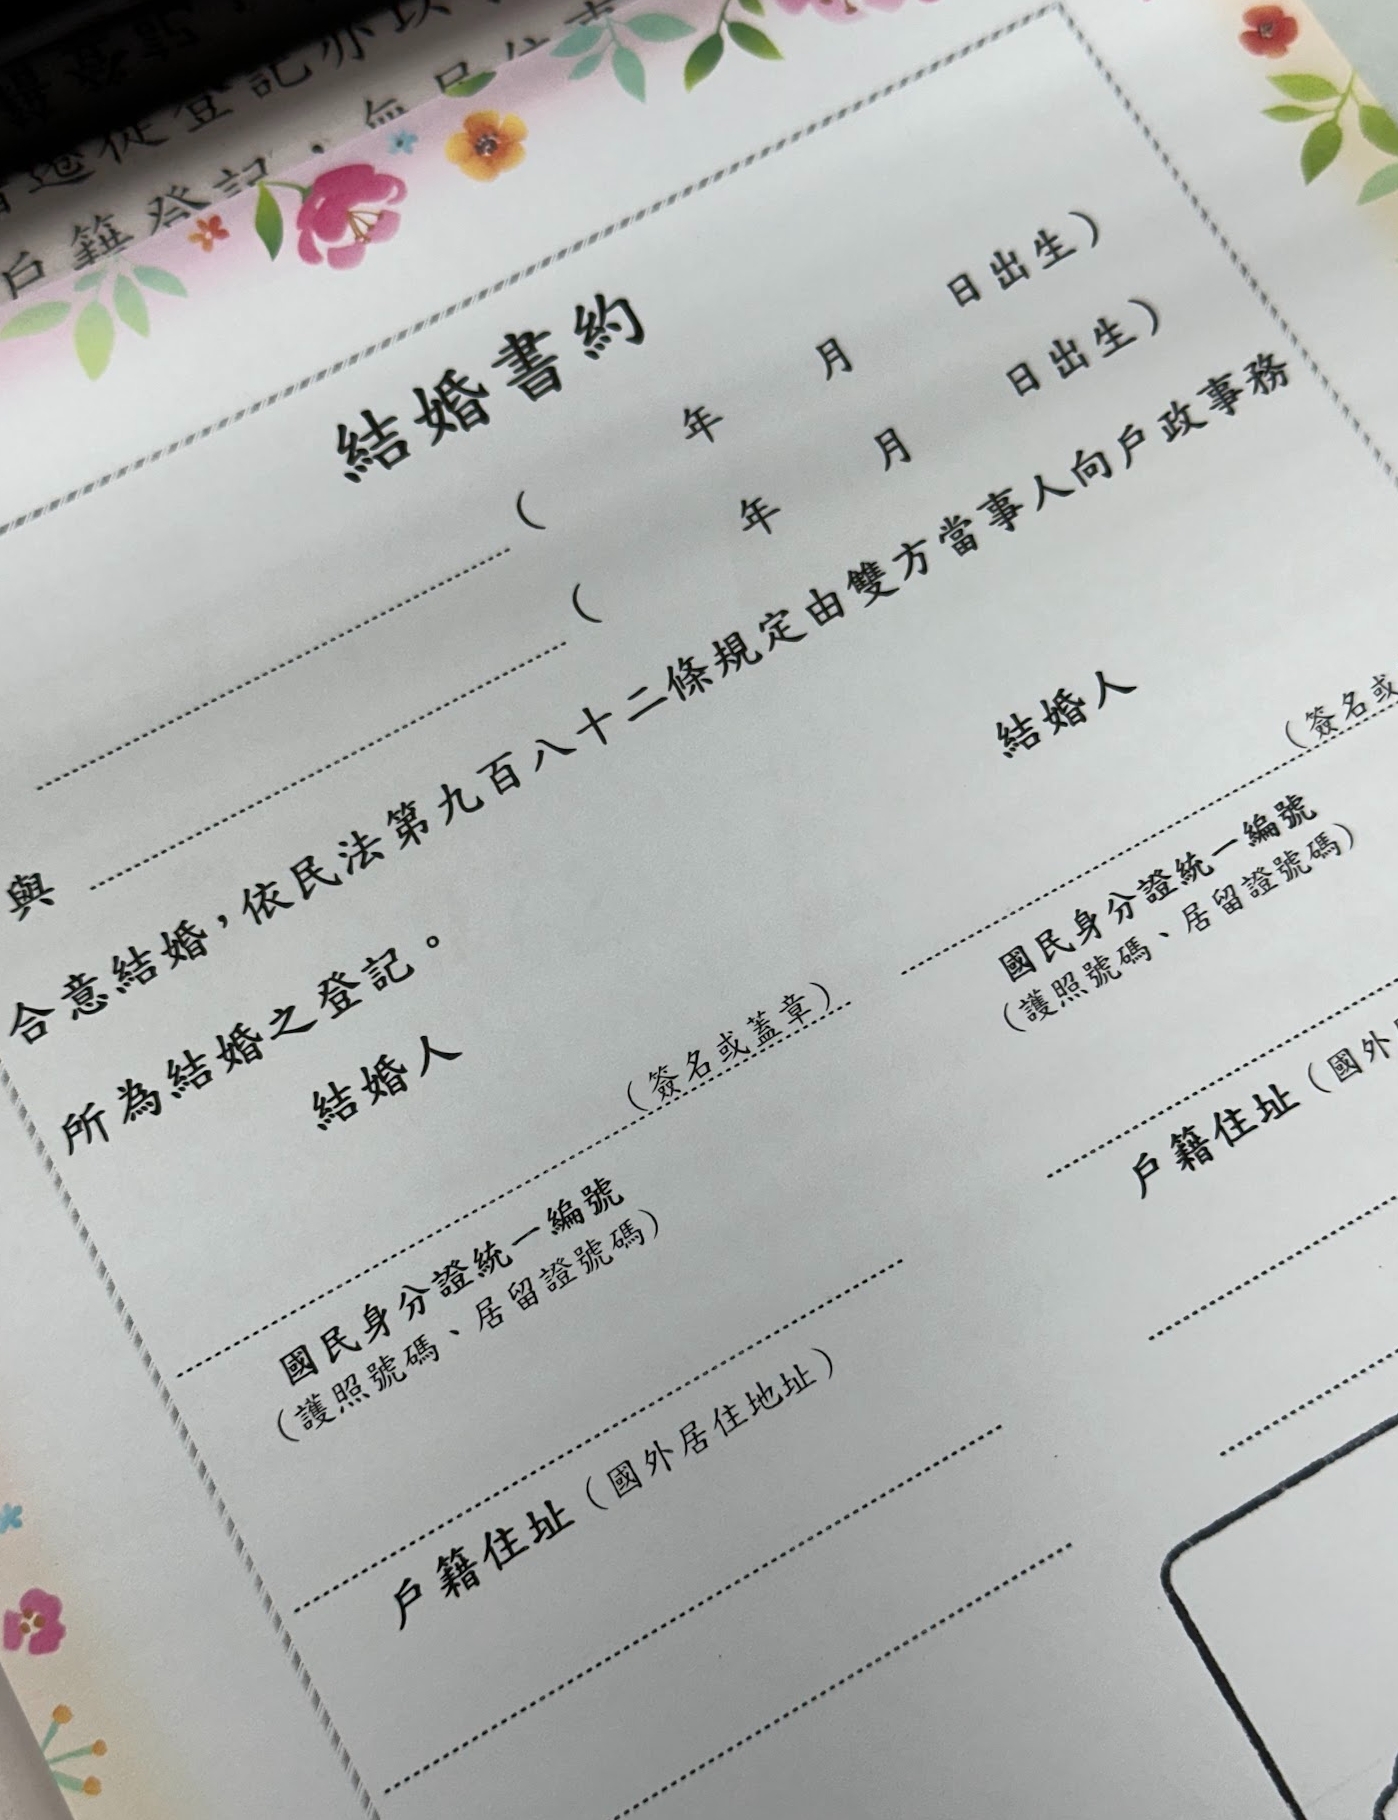 遷徙登記亦以
戶籍登記，無戶住
結婚書約
（ 年 月 日出生）
與 （ 年 月 日出生）
合意結婚，依民法第九百八十二條規定由雙方當事人向戶政事務
所為結婚之登記。
結婚人
（簽名或蓋章）
國民身分證統一編號
（護照號碼、居留證號碼）
戶籍住址（國外居住地址）
結婚人
（簽名或
國民身分證統一編號
（護照號碼、居留證號碼）
戶籍住址（國外